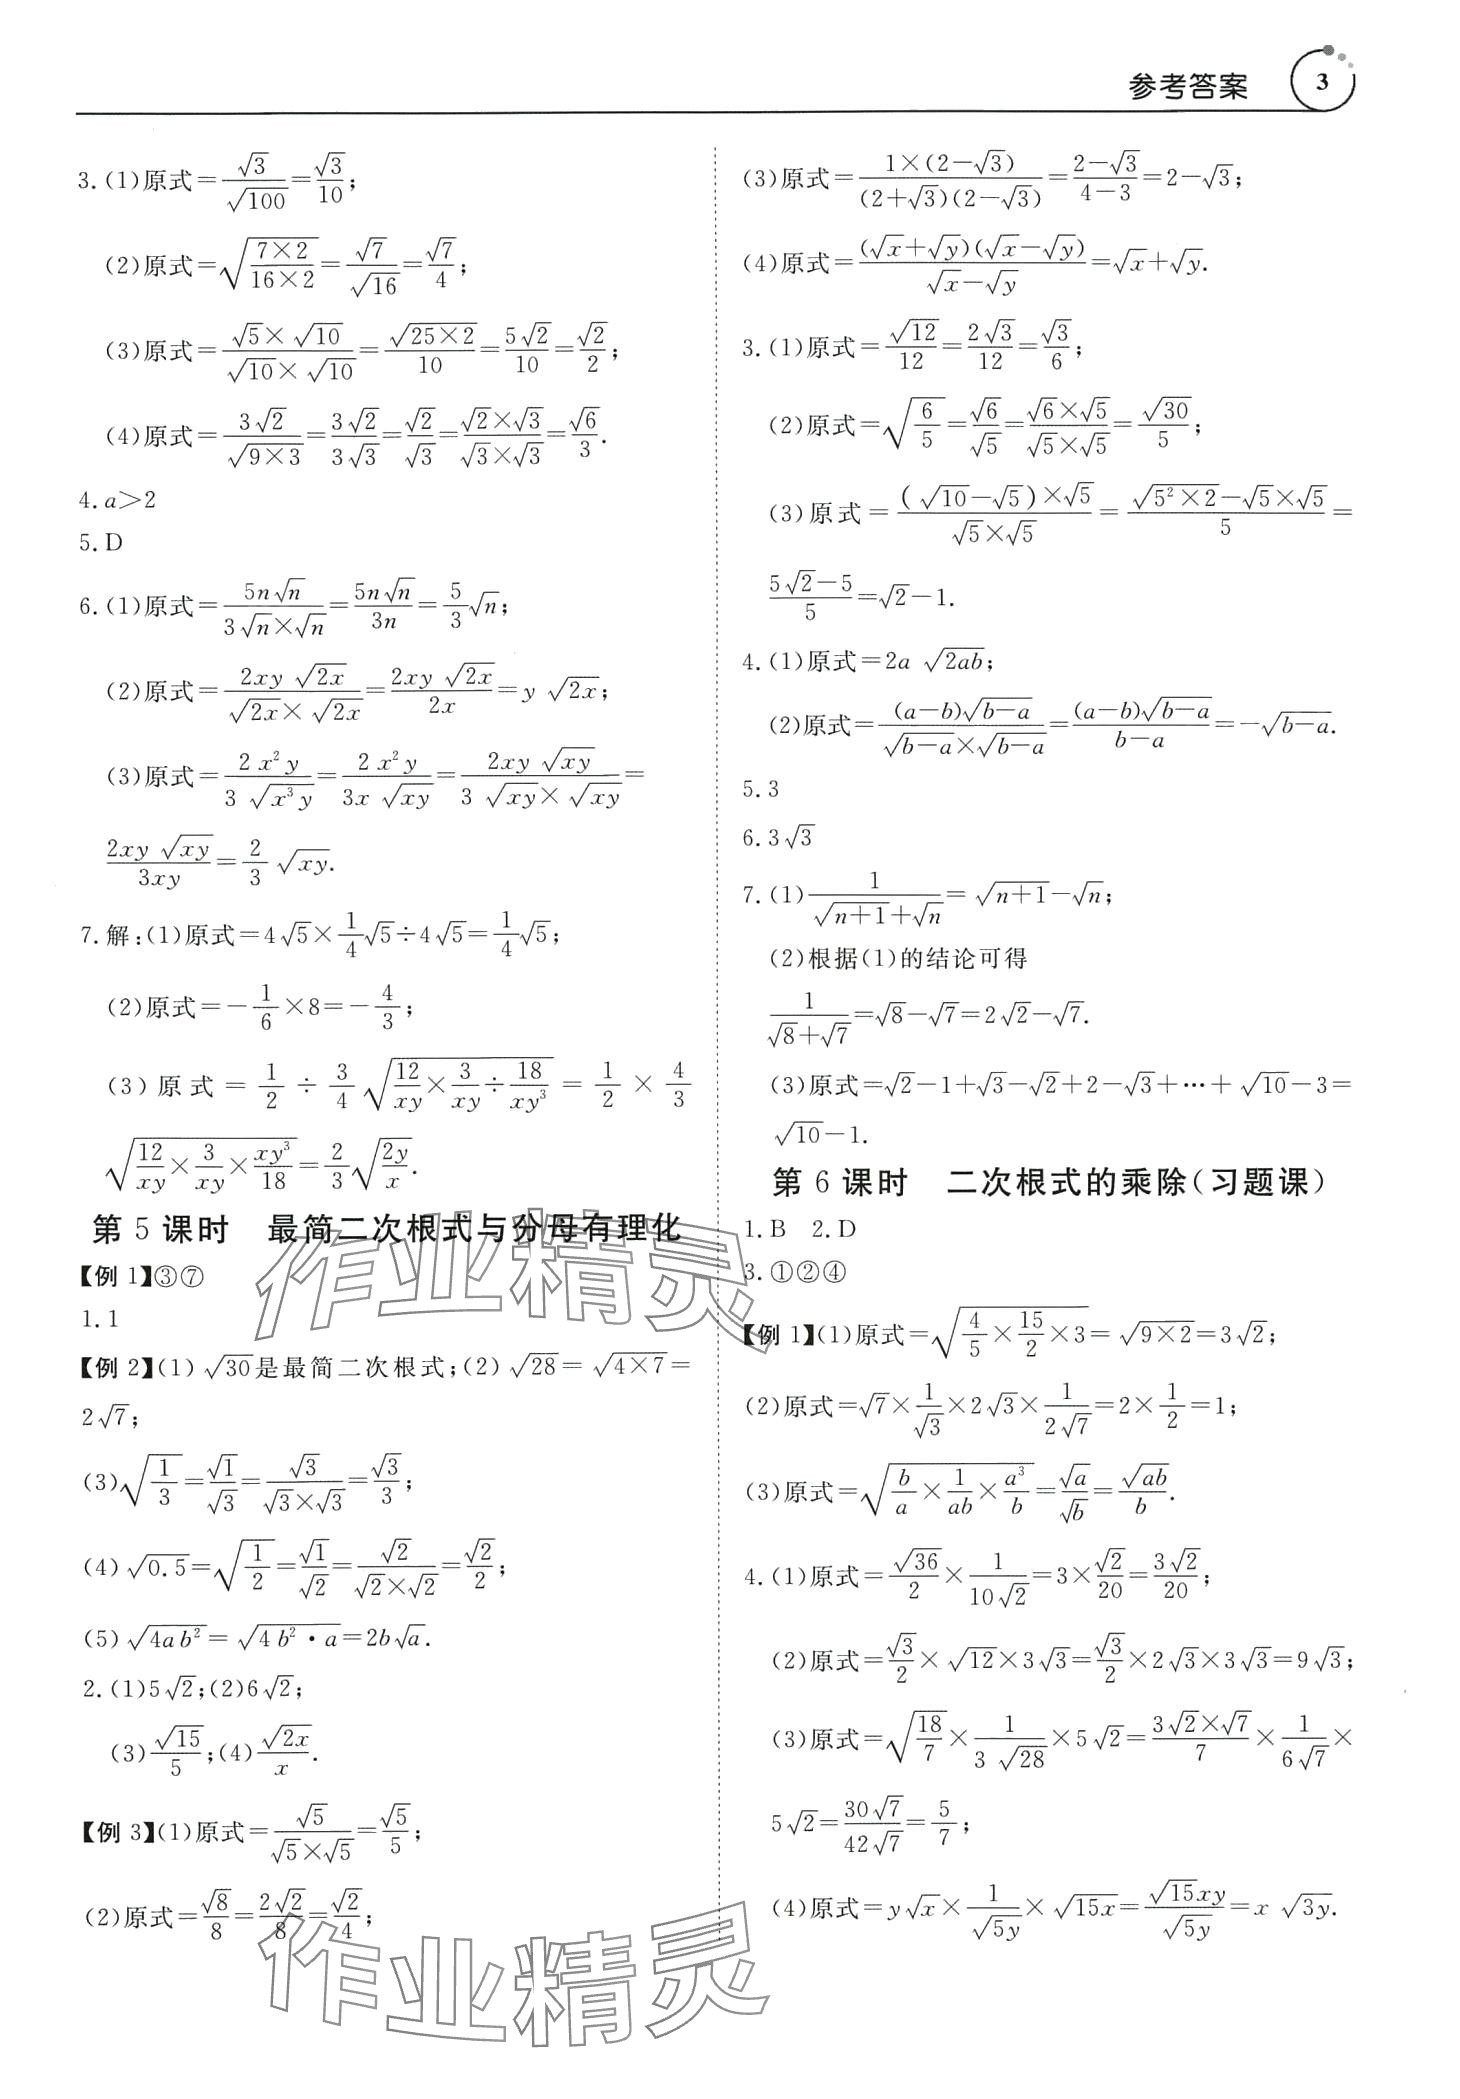 参考答案 3
3.(1)原式=√3/√100=√3/10;
(2)原式=√((7×2)/(16×2))=√7/√16=√7/4;
(3)原式=(√5×√10)/(√10×√10)=√(25×2)/10=5√2/10=√2/2;
(4)原式=3√2/√(9×3)=3√2/3√3=√2/√3=(√2×√3)/(√3×√3)=√6/3.
4.a>2
5.D
6.(1)原式=5n√n/(3√n×√n)=5n√n/3n=5/3√n;
(2)原式=2xy√(2x)/(√(2x)×√(2x))=2xy√(2x)/2x=y√(2x);
(3)原式=2x²y/(3√(x³y))=2x²y/(3x√(xy))=2xy√(xy)/(3√(xy)×√(xy))=
2xy√(xy)/3xy=2/3√(xy).
7.解:(1)原式=4√5×1/4√5÷4√5=1/4√5;
(2)原式=-1/6×8=-4/3;
(3)原式=1/2÷3/4√(12/xy×3/xy÷18/xy³)=1/2×4/3
√(12/xy×3/xy×xy³/18)=2/3√(2y/x).
第5课时 最简二次根式与分母有理化
【例1】③⑦
1.1
【例2】(1)√30是最简二次根式;(2)√28=√(4×7)=
2√7;
(3)√(1/3)=√1/√3=√3/(√3×√3)=√3/3;
(4)√0.5=√(1/2)=√1/√2=√2/(√2×√2)=√2/2;
(5)√(4ab²)=√(4b²·a)=2b√a.
2.(1)5√2;(2)6√2;
(3)√15/5;(4)√(2x)/x.
【例3】(1)原式=√5/(√5×√5)=√5/5;
(2)原式=√8/8=2√2/8=√2/4;
(3)原式=1×(2-√3)/((2+√3)(2-√3))=(2-√3)/(4-3)=2-√3;
(4)原式=(√x+√y)(√x-√y)/(√x-√y)=√x+√y.
3.(1)原式=√12/12=2√3/12=√3/6;
(2)原式=√(6/5)=√6/√5=(√6×√5)/(√5×√5)=√30/5;
(3)原式=(√10-√5)×√5/(√5×√5)=(√(5²×2)-√5×√5)/5=
(5√2-5)/5=√2-1.
4.(1)原式=2a√(2ab);
(2)原式=(a-b)√(b-a)/(√(b-a)×√(b-a))=(a-b)√(b-a)/(b-a)=-√(b-a).
5.3
6.3√3
7.(1)1/(√(n+1)+√n)=√(n+1)-√n;
(2)根据(1)的结论可得
1/(√8+√7)=√8-√7=2√2-√7.
(3)原式=√2-1+√3-√2+2-√3+…+√10-3=
√10-1.
第6课时 二次根式的乘除(习题课)
1.B 2.D
3.①②④
【例1】(1)原式=√(4/5×15/2×3)=√(9×2)=3√2;
(2)原式=√7×1/√3×2√3×1/2√7=2×1/2=1;
(3)原式=√(b/a×1/ab×a³/b)=√a/√b=√(ab)/b.
4.(1)原式=√36/2×1/10√2=3×√2/20=3√2/20;
(2)原式=√3/2×√12×3√3=√3/2×2√3×3√3=9√3;
(3)原式=√(18/7)×1/(3√28)×5√2=(3√2×√7)/7×1/6√7×
5√2=30√7/42√7=5/7;
(4)原式=y√x×1/√(5y)×√(15x)=√15xy/√(5y)=x√(3y).
作业精灵
作业精灵